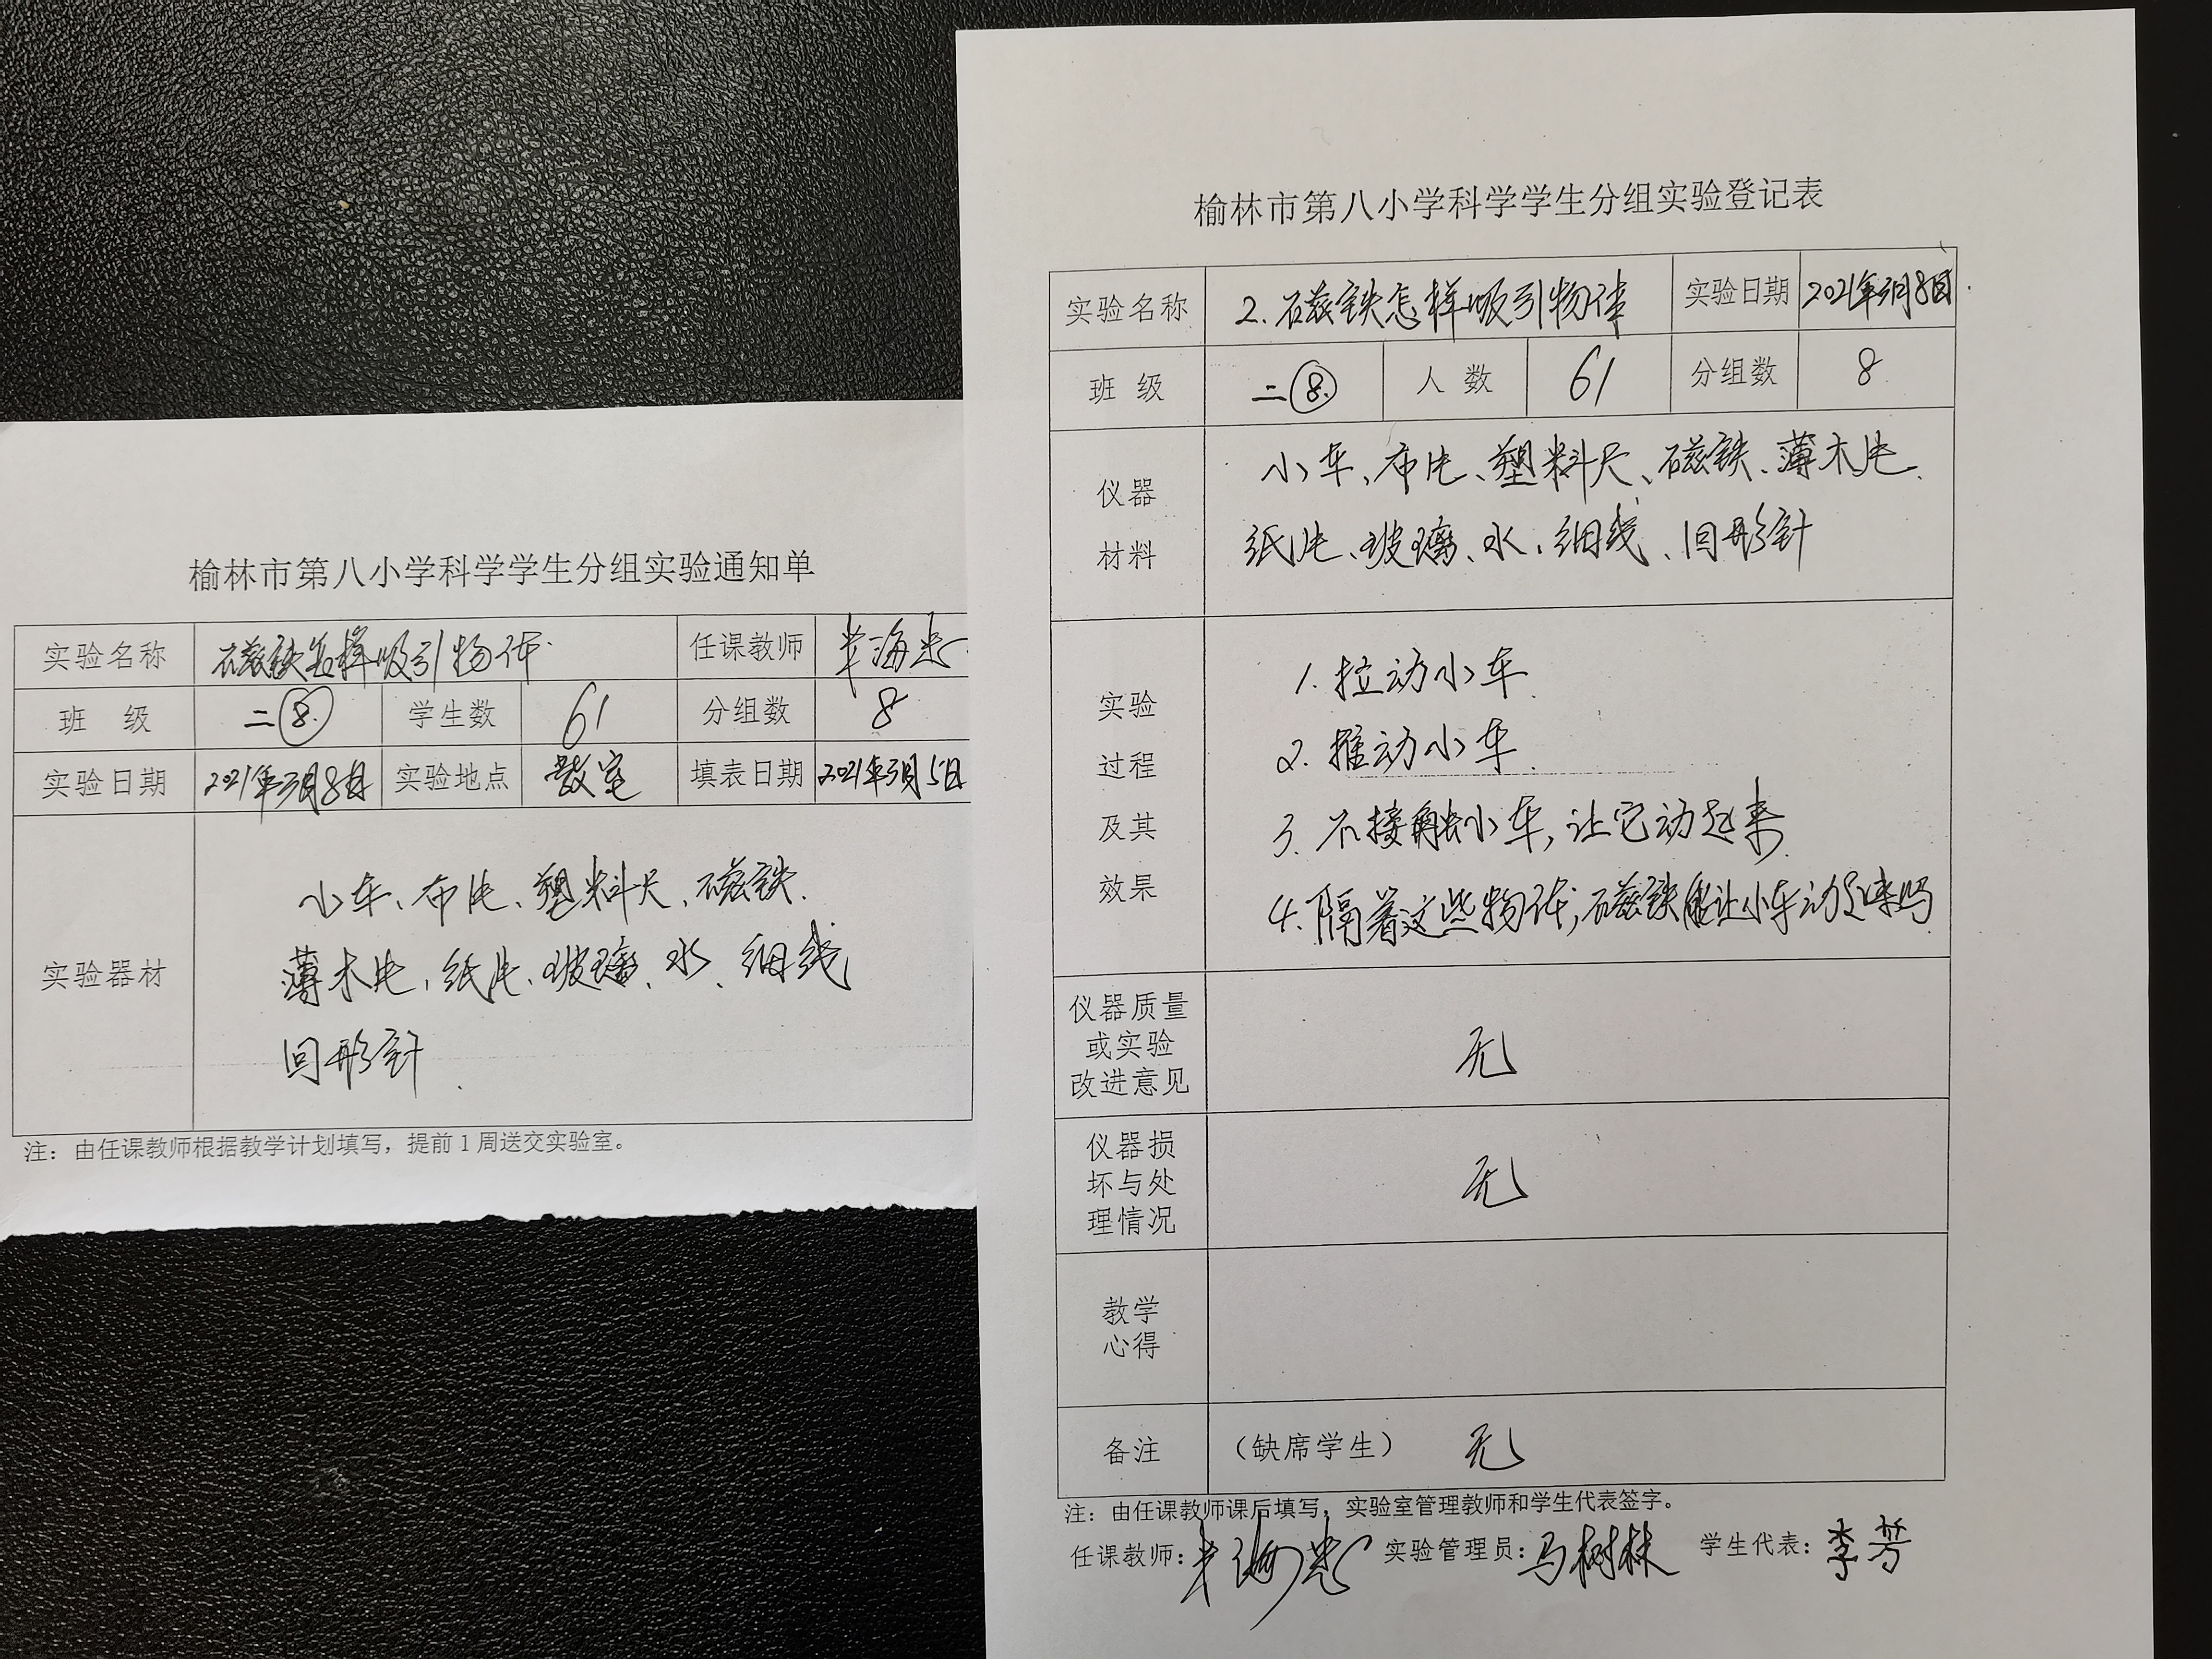 榆林市第八小学科学学生分组实验通知单
实验名称 磁铁怎样吸引物体 任课教师
班 级 二⑧ 学生数 61 分组数 8
实验日期 2021年3月8日 实验地点 教室 填表日期 2021年3月5日
小车、布片、塑料尺、磁铁、
实验器材 薄木片、纸片、玻璃、水、细线
回形针
注：由任课教师根据教学计划填写，提前1周送交实验室。
榆林市第八小学科学学生分组实验登记表
实验名称 2.磁铁怎样吸引物体 实验日期 2021年3月8日
班 级 二⑧ 人 数 61 分组数 8
仪器 小车、布片、塑料尺、磁铁、薄木片、
材料 纸片、玻璃、水、细线、回形针
实验 1.拉动小车
过程 2.推动小车
及其 3.不接触小车,让它动起来
效果 4.隔着这些物体,磁铁能让小车动起来吗
仪器质量
或实验 无
改进意见
仪器损
坏与处 无
理情况
教学
心得
备注 （缺席学生） 无
注：由任课教师课后填写，实验室管理教师和学生代表签字。
任课教师： 实验管理员：马树林 学生代表：李芳